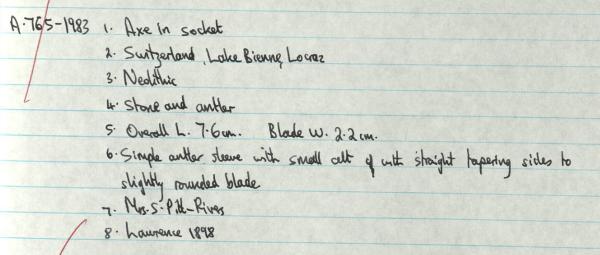 A.765-1983 1. Axe in socket
2. Switzerland, Lake Bienne, Locraz
3. Neolithic
4. Stone and antler
5. Overall L. 7.6cm. Blade W. 2.2cm.
6. Simple antler sleeve with small celt of with straight tapering sides to
slightly rounded blade
7. Mrs. S. Pitt-Rivers
8. Lawrence 1898